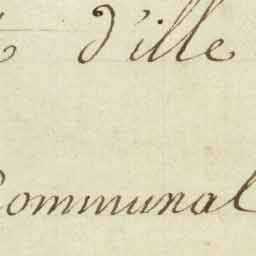 t d'ille
Communal